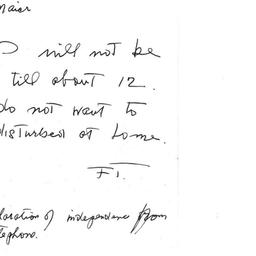 I will not be
till about 12.
do not want to
disturbed at home.
F.T.
laration of independence from
lephone.